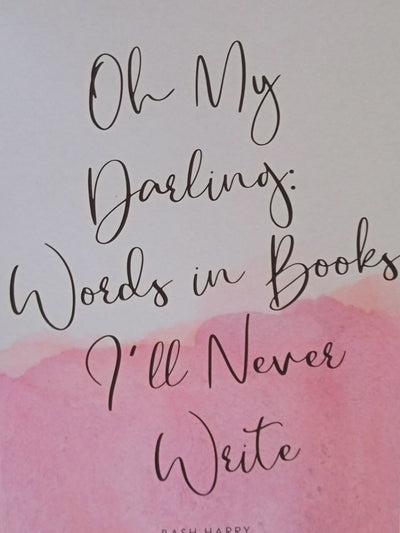 Oh My
Darling:
Words in Books
I'll Never
Write
BASH HARRY